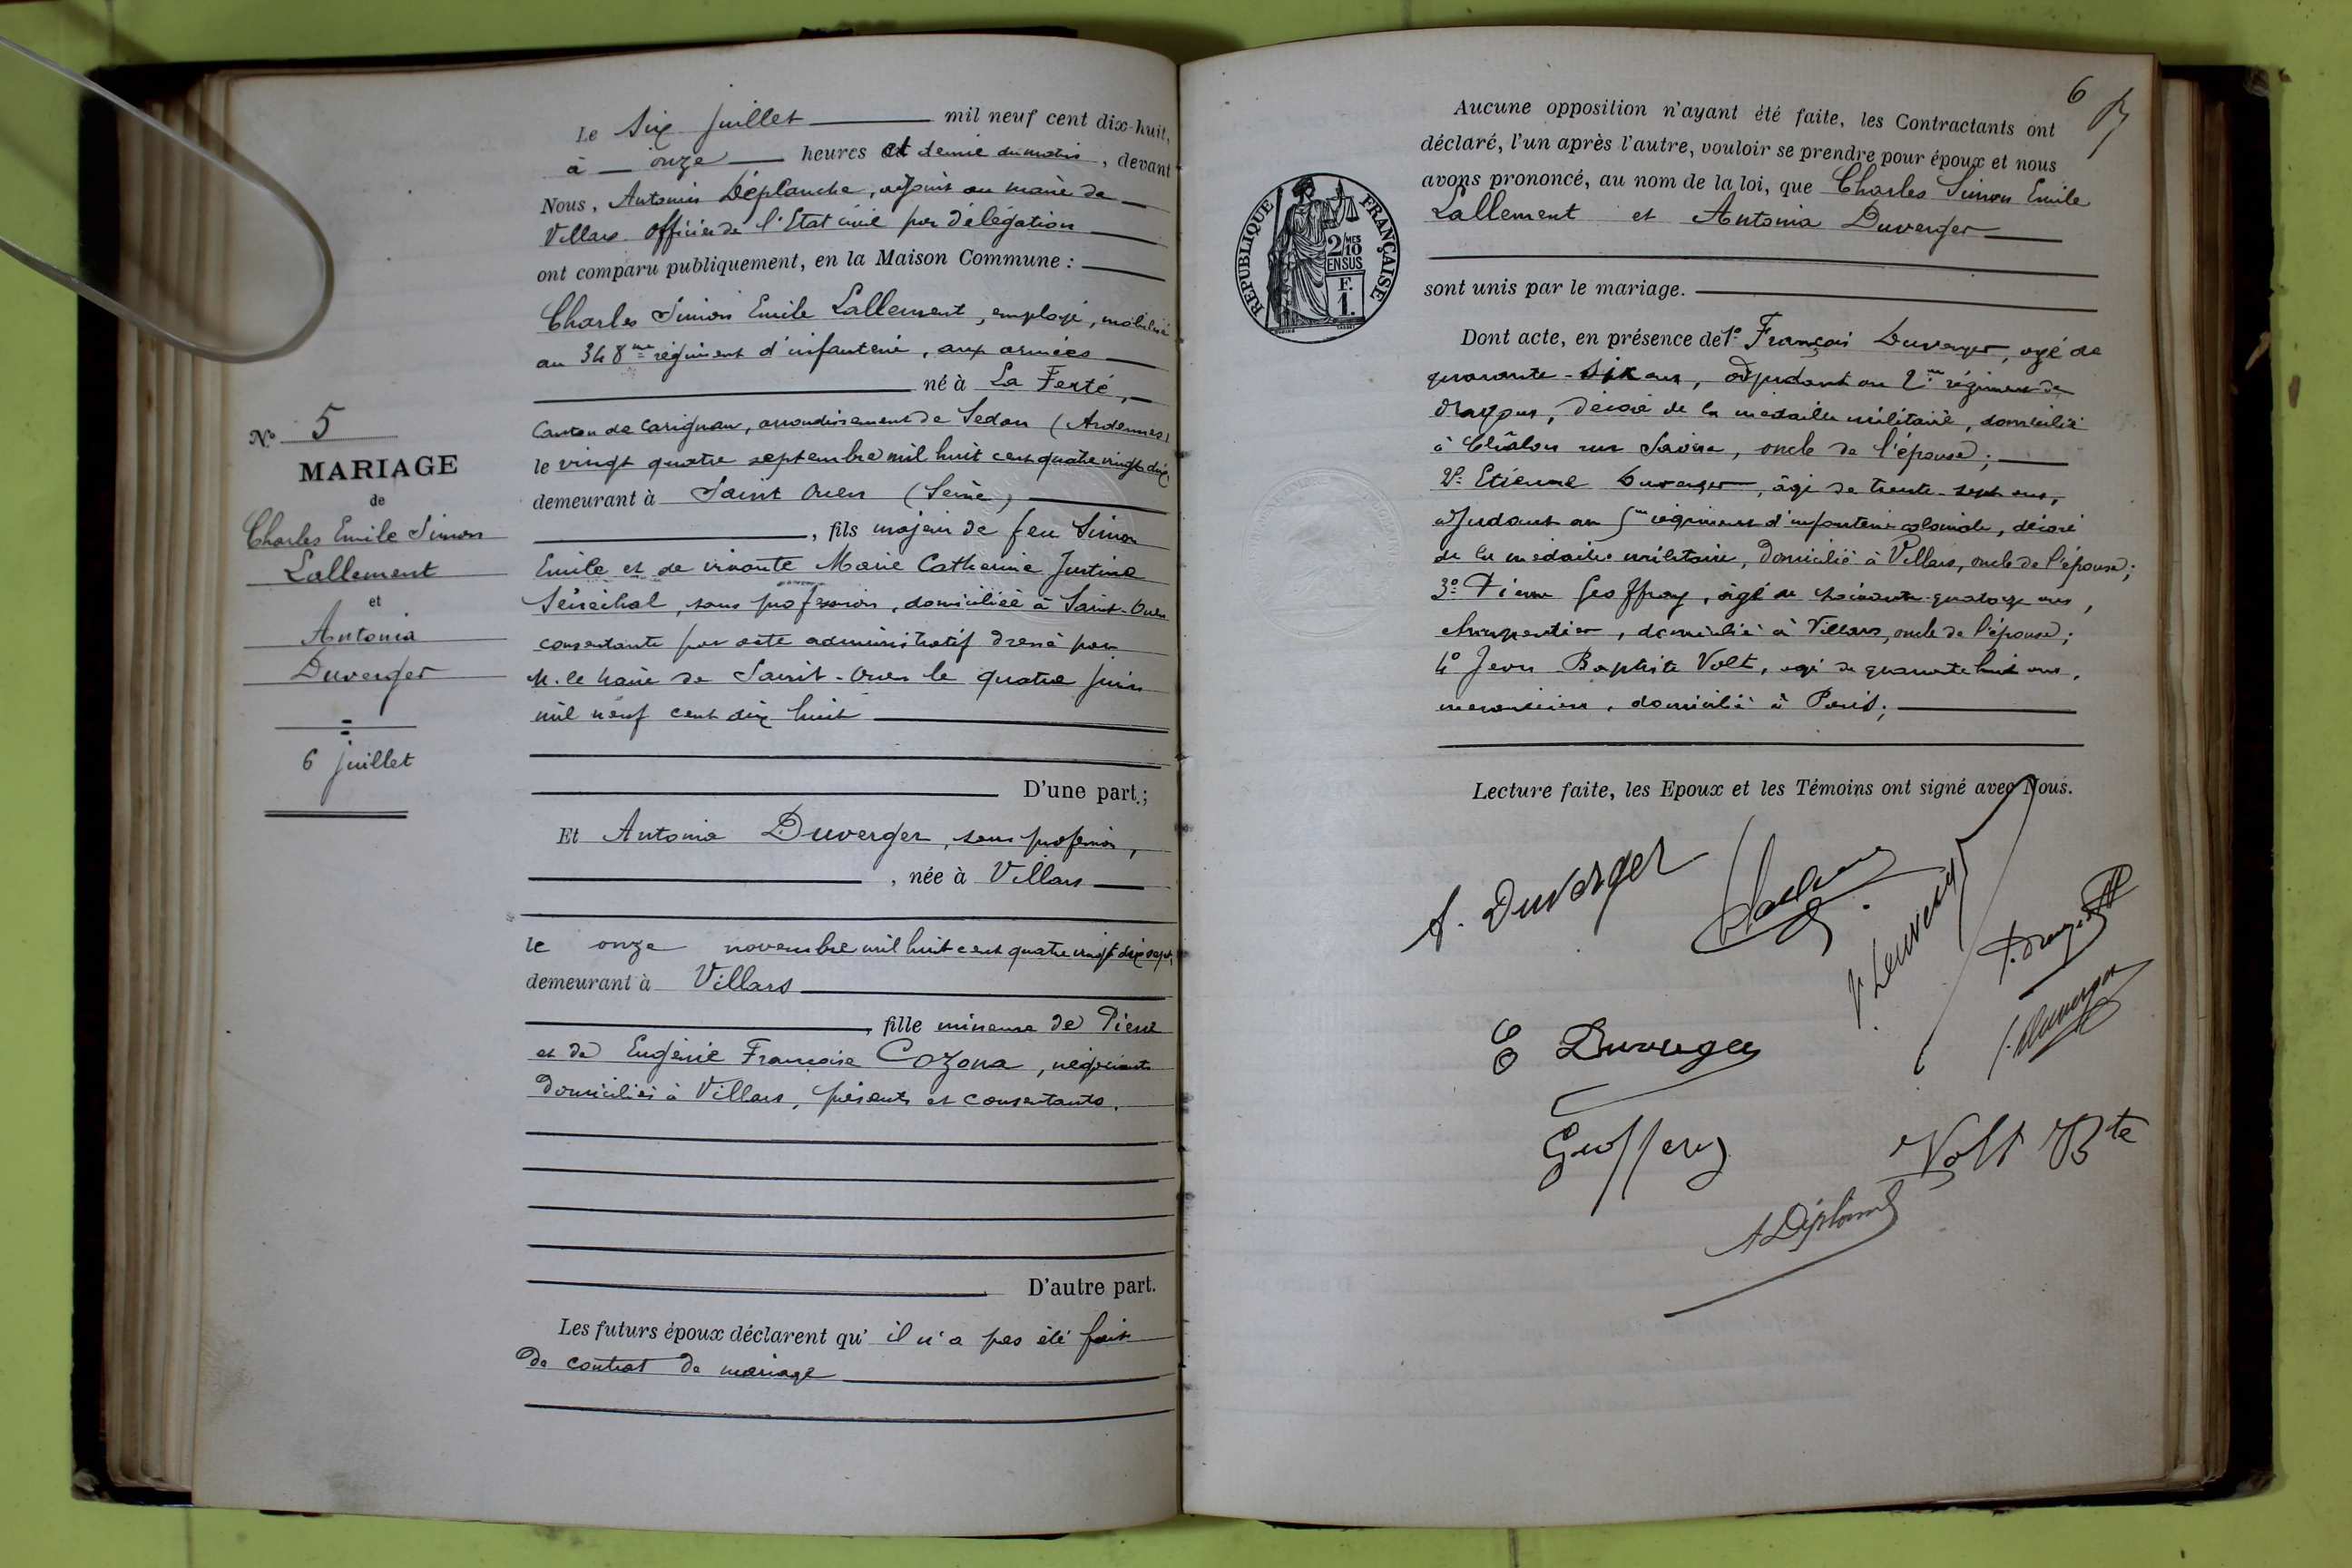 Le Six juillet mil neuf cent dix-huit,
à onze heures et demie du matin, devant
Nous, Antonin Déplanche, adjoint au maire de
Villars Officier de l'Etat civil par délégation
ont comparu publiquement, en la Maison Commune :
Charles Simon Emile Lallement, employé, mobilisé
au 348me régiment d'infanterie, aux armées
né à La Ferté,
Canton de Carignan, arrondissement de Sedan (Ardennes)
le vingt quatre septembre mil huit cent quatre vingt dix
demeurant à Saint Ouen (Seine)
, fils majeur de feu Simon
Emile et de vivante Marie Catherine Justine
Sénéchal, sans profession, domiciliée à Saint-Ouen
consentante par acte administratif dressé par
M. le Maire de Saint-Ouen le quatre juin
mil neuf cent dix huit
D'une part ;
Et Antonia Duverger, sans profession,
, née à Villars
le onze novembre mil huit cent quatre vingt dix sept,
demeurant à Villars
, fille mineure de Pierre
et de Eugénie Françoise Cozona, négociants
domiciliés à Villars, présents et consentants.
D'autre part.
Les futurs époux déclarent qu' il n'a pas été fait
de contrat de mariage
N° 5
MARIAGE
de
Charles Emile Simon
Lallement
et
Antonia
Duverger
6 juillet
6
Aucune opposition n'ayant été faite, les Contractants ont
déclaré, l'un après l'autre, vouloir se prendre pour époux et nous
avons prononcé, au nom de la loi, que Charles Simon Emile
Lallement et Antonia Duverger
sont unis par le mariage.
REPUBLIQUE FRANÇAISE
2/10 MES
EN SUS
F.
1.
Dont acte, en présence de 1° François Duverger, âgé de
quarante-six ans, adjudant au 2me régiment de
dragons, décoré de la médaille militaire, domicilié
à Châlon sur Saône, oncle de l'épouse;
2° Etienne Duverger, âgé de trente-sept ans,
adjudant au 5me régiment d'infanterie coloniale, décoré
de la médaille militaire, domicilié à Villars, oncle de l'épouse;
3° Pierre Geoffray, âgé de soixante-quatorze ans,
charpentier, domicilié à Villars, oncle de l'épouse;
4° Jean Baptiste Volt, âgé de quarante huit ans,
domicilié à Paris;
Lecture faite, les Epoux et les Témoins ont signé avec Nous.
A. Duverger
E Duverger
Geoffray
Volt Bte
ADéplanche